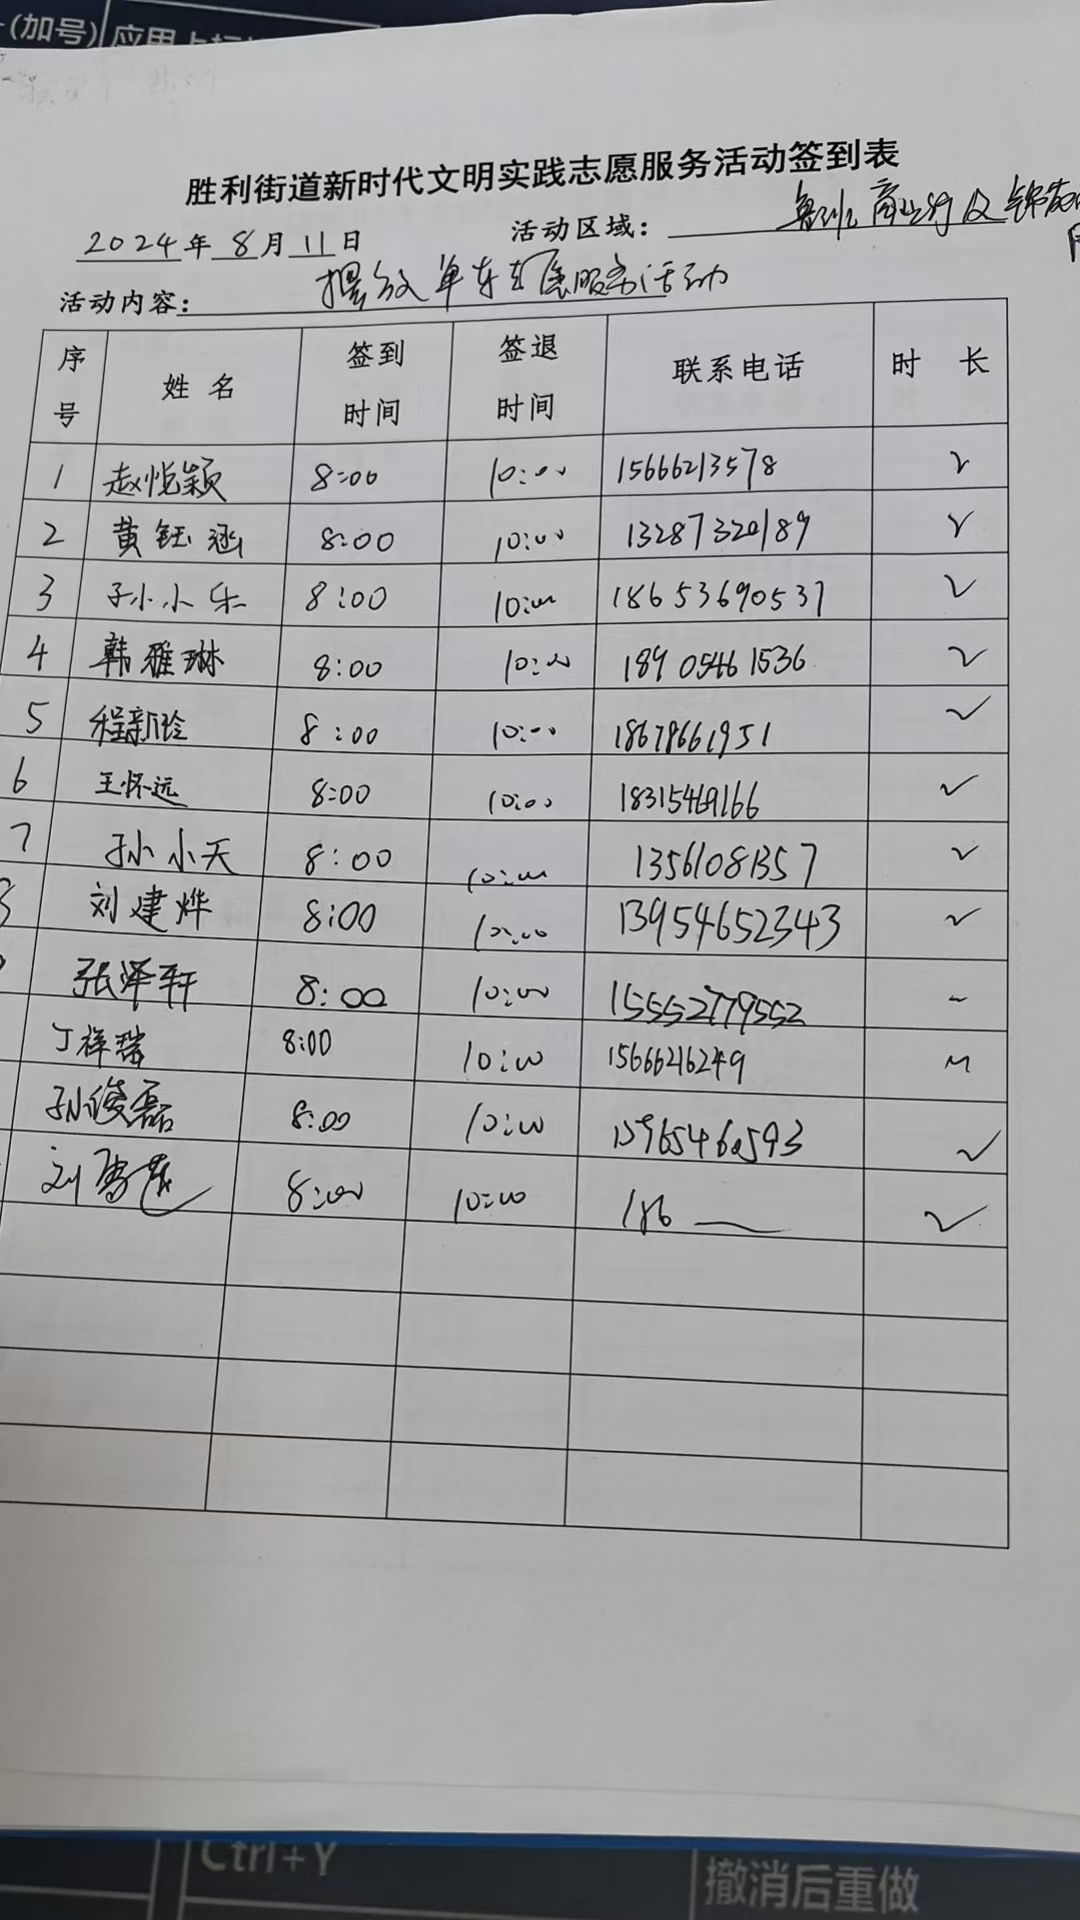 (加号) 应用
胜利街道新时代文明实践志愿服务活动签到表
2024年8月11日 活动区域：商业街及锦苑
活动内容：摆放单车志愿服务活动
序号 姓名 签到时间 签退时间 联系电话 时长
1 赵悦颖 8:00 10:00 15666213578 √
2 黄钰涵 8:00 10:00 13287320189 √
3 孙小乐 8:00 10:00 18653690537 √
4 韩雅琳 8:00 10:00 18905461536 √
5 程新玲 8:00 10:00 18678661951 √
6 王怀远 8:00 10:00 18315469166 √
7 孙小天 8:00 10:00 13561081357 √
8 刘建烨 8:00 10:00 13954652343 √
张泽轩 8:00 10:00 155552779552
丁祥瑞 8:00 10:00 15666216249
孙俊磊 8:00 10:00 13965460593 √
刘 8:00 10:00 186 √
Ctrl+Y 撤消后重做